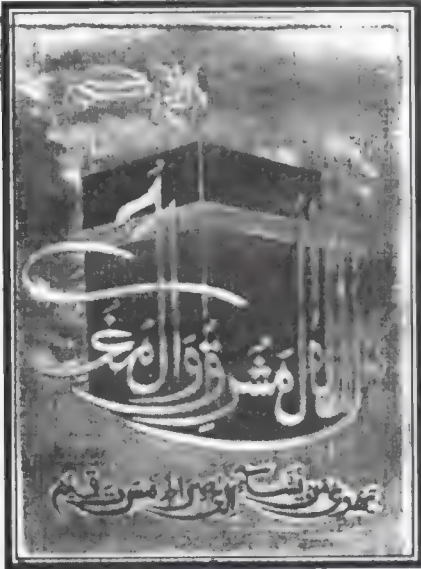 لله المَشرق وَالمَغرب
يهدي من يشاء إلى صراط مستقيم